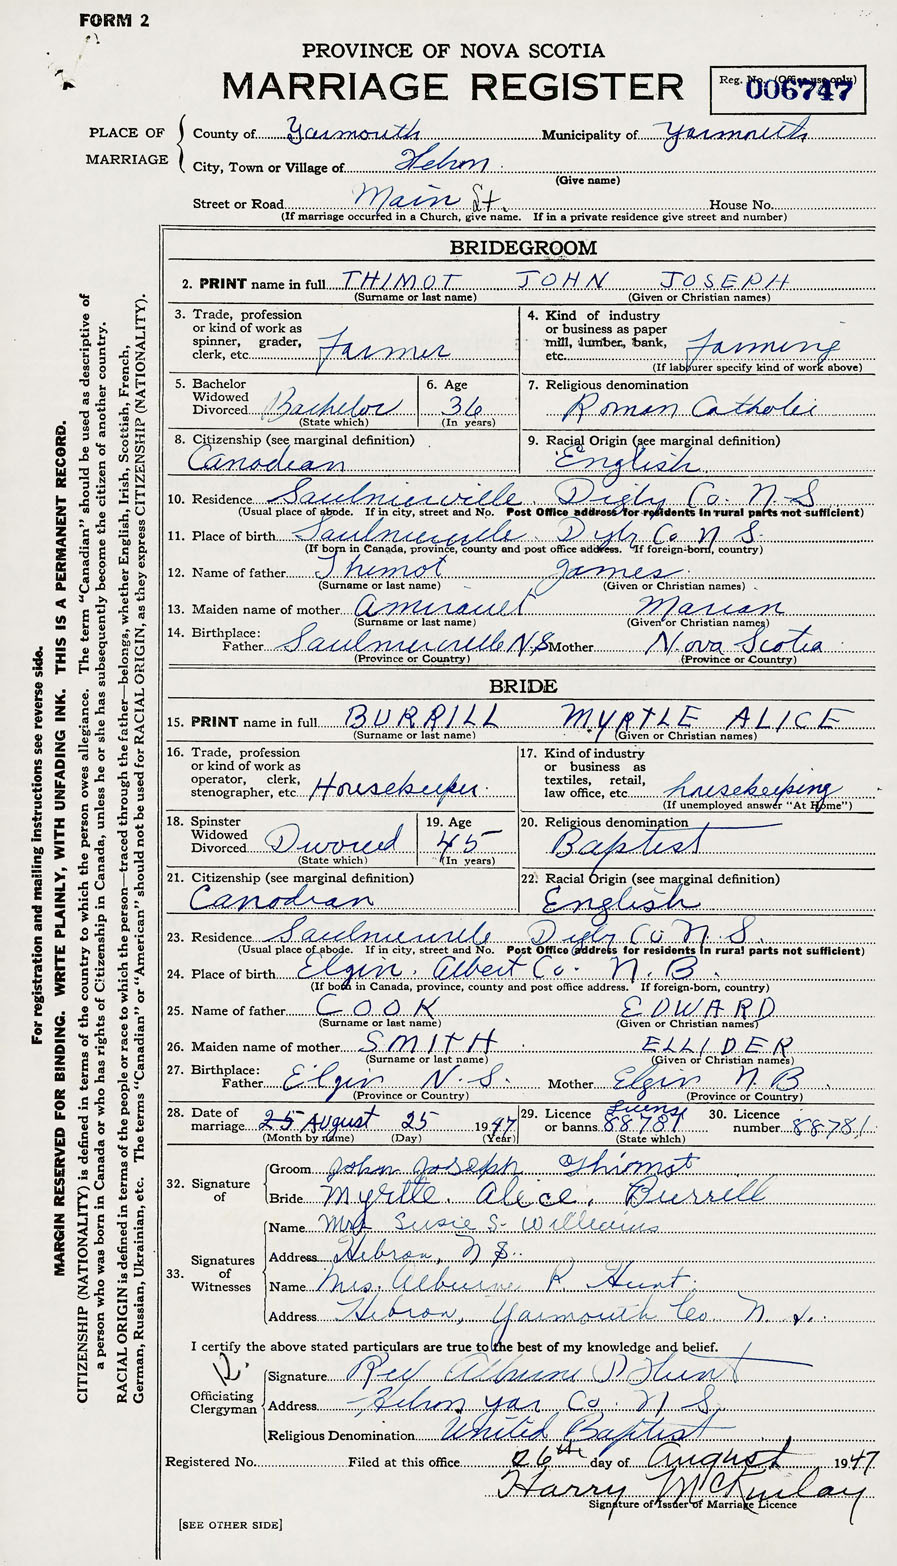 FORM 2
PROVINCE OF NOVA SCOTIA
MARRIAGE REGISTER
Reg. No. (Office use only)
006747
PLACE OF MARRIAGE
County of Yarmouth Municipality of Yarmouth
City, Town or Village of Hebron
(Give name)
Street or Road Main St. House No.
(If marriage occurred in a Church, give name. If in a private residence give street and number)
BRIDEGROOM
2. PRINT name in full THIMOT JOHN JOSEPH
(Surname or last name) (Given or Christian names)
3. Trade, profession or kind of work as spinner, grader, clerk, etc. Farmer
4. Kind of industry or business as paper mill, lumber, bank, etc. farming
(If labourer specify kind of work above)
5. Bachelor Widowed Divorced Bachelor
(State which)
6. Age 36
(In years)
7. Religious denomination Roman Catholic
8. Citizenship (see marginal definition)
Canadian
9. Racial Origin (see marginal definition)
English
10. Residence Saulnierville Digby Co. N.S
(Usual place of abode. If in city, street and No. Post Office address for residents in rural parts not sufficient)
11. Place of birth Saulnierville Digby Co N S.
(If born in Canada, province, county and post office address. If foreign-born, country)
12. Name of father Thimot James
(Surname or last name) (Given or Christian names)
13. Maiden name of mother Amirault Marian
(Surname or last name) (Given or Christian names)
14. Birthplace: Father Saulnierville N.S Mother Nova Scotia
(Province or Country) (Province or Country)
BRIDE
15. PRINT name in full BURRILL MYRTLE ALICE
(Surname or last name) (Given or Christian names)
16. Trade, profession or kind of work as operator, clerk, stenographer, etc Housekeeper
17. Kind of industry or business as textiles, retail, law office, etc. housekeeping
(If unemployed answer "At Home")
18. Spinster Widowed Divorced Divorced
(State which)
19. Age 45
(In years)
20. Religious denomination
Baptist
21. Citizenship (see marginal definition)
Canadian
22. Racial Origin (see marginal definition)
English
23. Residence Saulnierville Digby Co N. S.
(Usual place of abode. If in city, street and No. Post Office address for residents in rural parts not sufficient)
24. Place of birth Elgin. Albert Co. N. B.
(If born in Canada, province, county and post office address. If foreign-born, country)
25. Name of father COOK EDWARD
(Surname or last name) (Given or Christian names)
26. Maiden name of mother SMITH ELLIDER
(Surname or last name) (Given or Christian names)
27. Birthplace: Father Elgin N. S. Mother Elgin N. B.
(Province or Country) (Province or Country)
28. Date of marriage 25 August 25 1947
(Month by name) (Day) (Year)
29. Licence or banns 88781
(State which)
30. Licence number 88781
32. Signature of
Groom John Joseph Thimot
Bride Myrtle. Alice. Burrell
33. Signatures of Witnesses
Name Mrs Susie S. Williams
Address Hebron, N S.
Name Mrs. Alburne R. Hunt.
Address Hebron, Yarmouth Co. N. S.
I certify the above stated particulars are true to the best of my knowledge and belief.
Officiating Clergyman
Signature Rev Alburne R Hunt
Address Hebron Yar. Co. N S.
Religious Denomination United Baptist
Registered No. Filed at this office 26th day of August 1947
Harry McKinlay
Signature of Issuer of Marriage Licence
[SEE OTHER SIDE]
For registration and mailing instructions see reverse side.
MARGIN RESERVED FOR BINDING. WRITE PLAINLY, WITH UNFADING INK. THIS IS A PERMANENT RECORD.
CITIZENSHIP (NATIONALITY) is defined in terms of the country to which the person owes allegiance. The term "Canadian" should be used as descriptive of
a person who was born in Canada or who has rights of Citizenship in Canada, unless he or she has subsequently become the citizen of another country.
RACIAL ORIGIN is defined in terms of the people or race to which the person—traced through the father—belongs, whether English, Irish, Scottish, French,
German, Russian, Ukrainian, etc. The terms "Canadian" or "American" should not be used for RACIAL ORIGIN, as they express CITIZENSHIP (NATIONALITY).